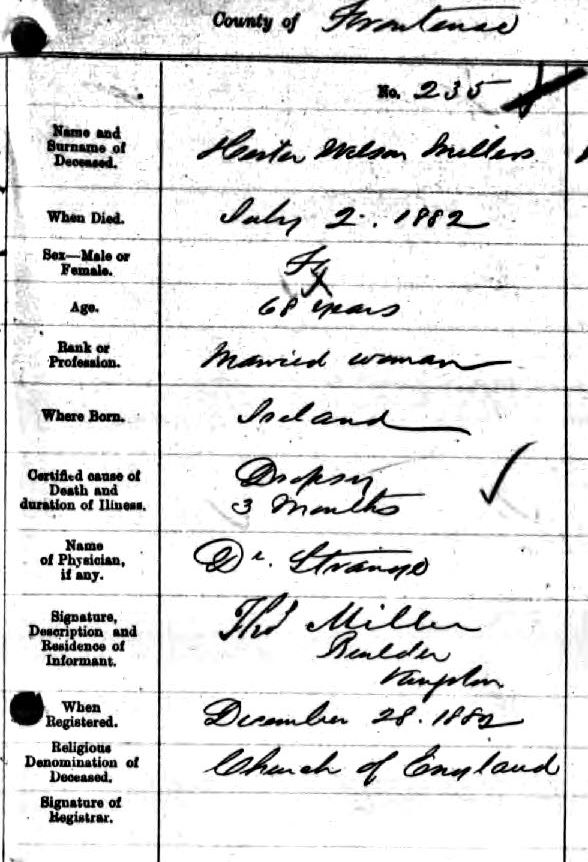 County of Frontenac
No. 235
Name and
Surname of
Deceased.
Hester Wilson Millers
When Died.
July 2. 1882
Sex—Male or
Female.
F
Age.
68 years
Rank or
Profession.
Married woman
Where Born.
Ireland
Certified cause of
Death and
duration of Illness.
Dropsy
3 Months
Name
of Physician,
if any.
Dr. Strange
Signature,
Description and
Residence of
Informant.
Thos Miller
Builder
Kingston
When
Registered.
December 28. 1882
Religious
Denomination of
Deceased.
Church of England
Signature of
Registrar.